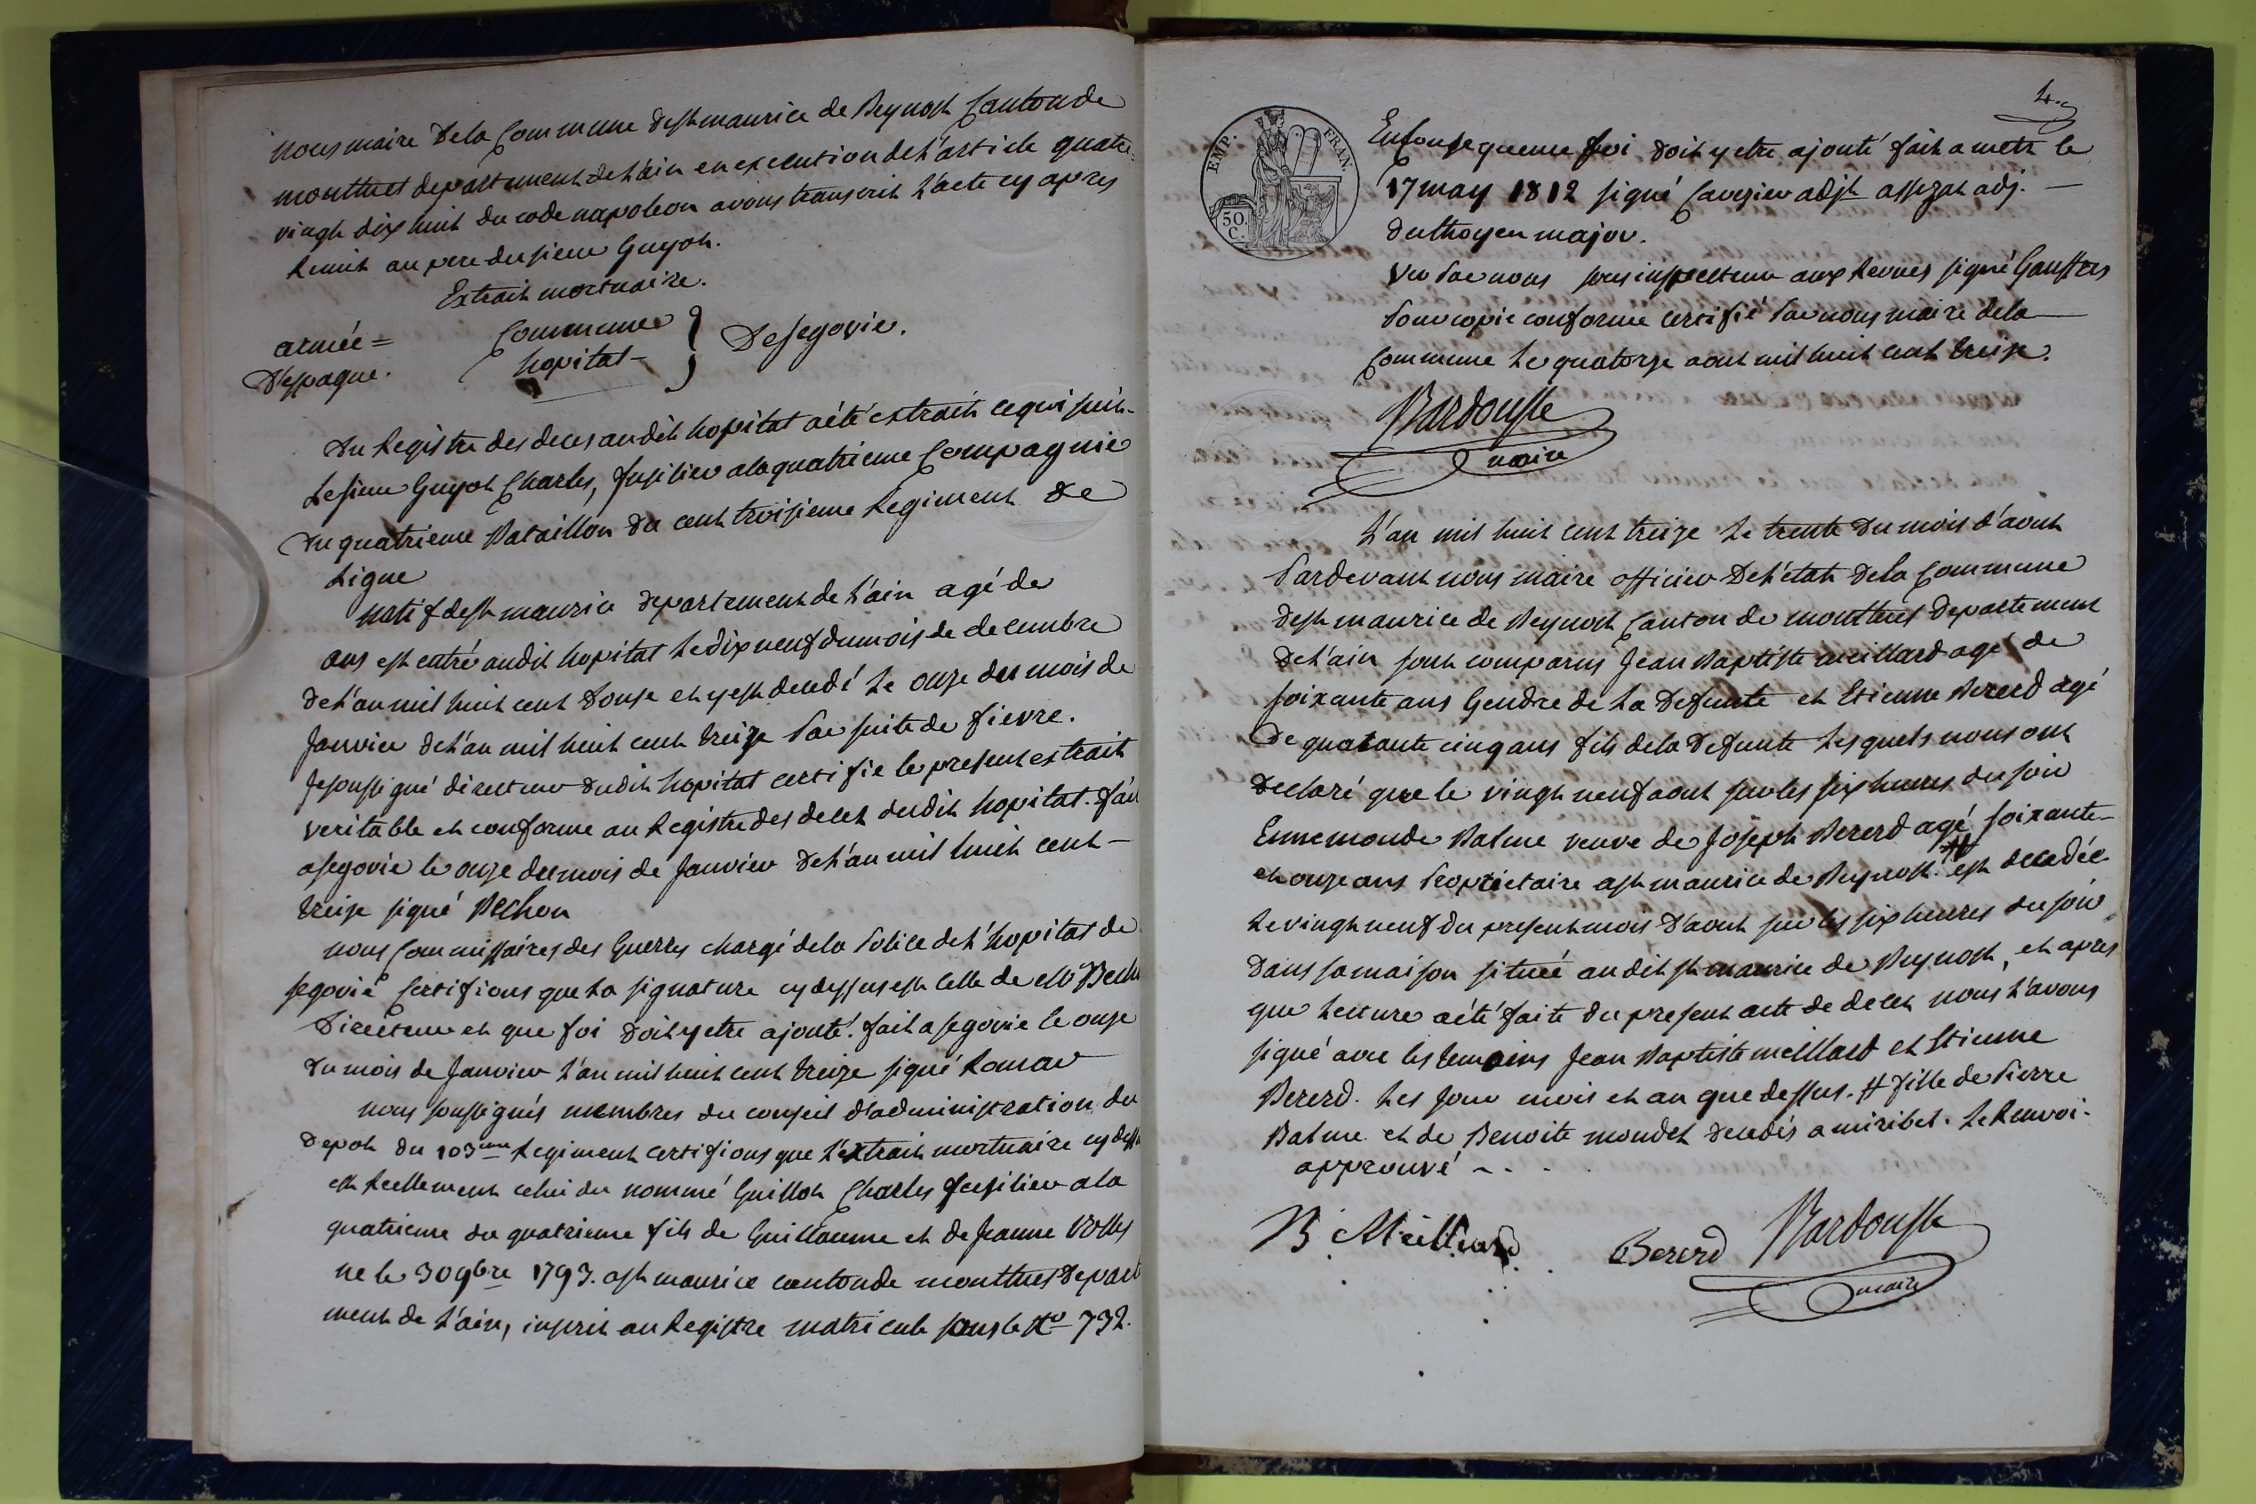 nous maire Dela Commune dest maurice de Beynost Canton de
monttuel departement de l'ain en execution de l'article quatre
vingt dix huit du code napoleon avons transcrit l'acte cy apres
Remit au pere du sieur Guyot.
Extrait mortuaire.
armée = Commune
D'espagne. hopital - } De segovie.
Du Registre des deces audit hopital a été extrait ce qui suit.
Le sieur Guyot Charles, fusilier a la quatrieme Compagnie
Du quatrieme Bataillon du cent troisieme Regiment de
Ligne
natif de st maurice departement de l'ain agé de
ans est entré audit hopital Le dix neuf du mois de decembre
de l'an mil huit cent Douse et y est decedé Le onze du mois de
Janvier de l'an mil huit cent treize Par suite de fievre.
Je soussigné directeur dudit hopital certifie le present extrait
veritable et conforme au Registre des deces dudit hopital. fait
a segovie le onze du mois de Janvier de l'an mil huit cent -
treize signé Bechon
nous Commissaires des Guerres chargé de la Police de l'hopital de
segovie Certifions que La signature cy dessus est Celle de Mr
Directeur et que foi Doit y etre ajouté. fait a segovie le onze
du mois de Janvier L'an mil huit cent treize signé
nous soussignés membres du conseil d'administration du
Depot du 103eme Regiment certifions que l'extrait mortuaire cy dessus
est Reellement celui du nommé Guillot Charles fusilier a la
quatrieme du quatrieme fils de Guillaume et de Jeanne
ne le 30 9bre 1793. a st maurice canton de monttuel Depart
ment de L'ain, inscrit au Registre matricule sous le No 732.
4.
En Consequence foi doit y etre ajouté fait a metz le
17 may 1812 signé adjt adj. -
major.
EMP. FRAN.
50 C.
Vu Par nous sous inspecteur aux Revues signé
Pour copie conforme certifié Par nous maire dela
Commune Le quatorze aout mil huit cent treize.
Bardousse
maire
L'an mil huit cent treize Le trente du mois d'aout
Pardevant nous maire officier De l'état Dela Commune
de st maurice de Beynost Canton de monttuel departement
de l'ain sont comparus Jean Baptiste meillard agé de
soixante ans Gendre de La Defunte et Etienne Bererd agé
De quarante cinq ans fils dela Defunte Lesquels nous ont
Declaré que le vingt neuf aout sur les six heures du soir
Ennemonde Balme veuve de Joseph Bererd agé soixante -
et onze ans Proprietaire a st maurice de Beynost # est decedée
Le vingt neuf du present mois D'aout sur les six heures du soir
Dans sa maison située audit st maurice de Beynost, et apres
que Lecture a été faite du present acte de deces nous l'avons
signé avec les temoins Jean Baptiste meillard et Etienne
Bererd. Les Jour mois et an que dessus. # fille de Pierre
Balme et de Benoite mondet decedés a miribel. Le Renvoi -
approuvé
B. Meillard Bererd Bardousse
maire